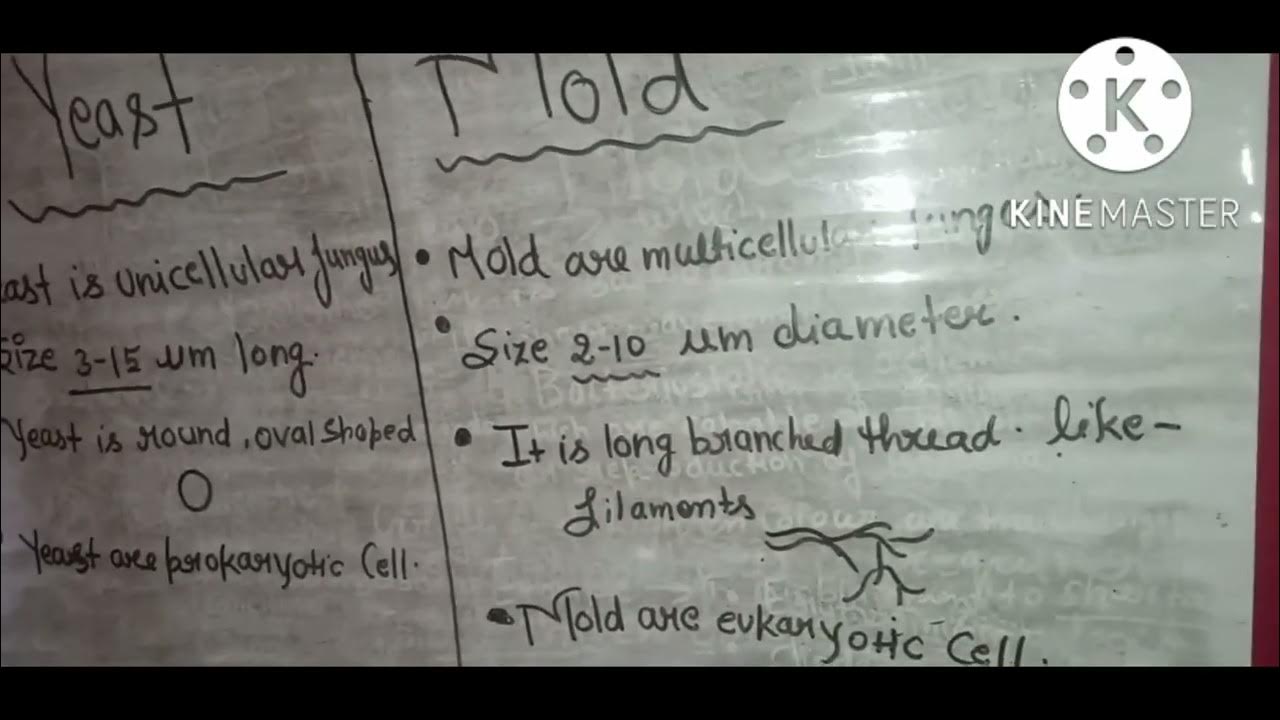 Yeast
east is unicellular fungus
Size 3-15 um long.
Yeast is round, oval shaped
Yeast are prokaryotic Cell.
Mold
• Mold are multicellular fungus
• Size 2-10 um diameter.
• It is long branched thread. like-
filaments
• Mold are eukaryotic Cell.
K
KINEMASTER